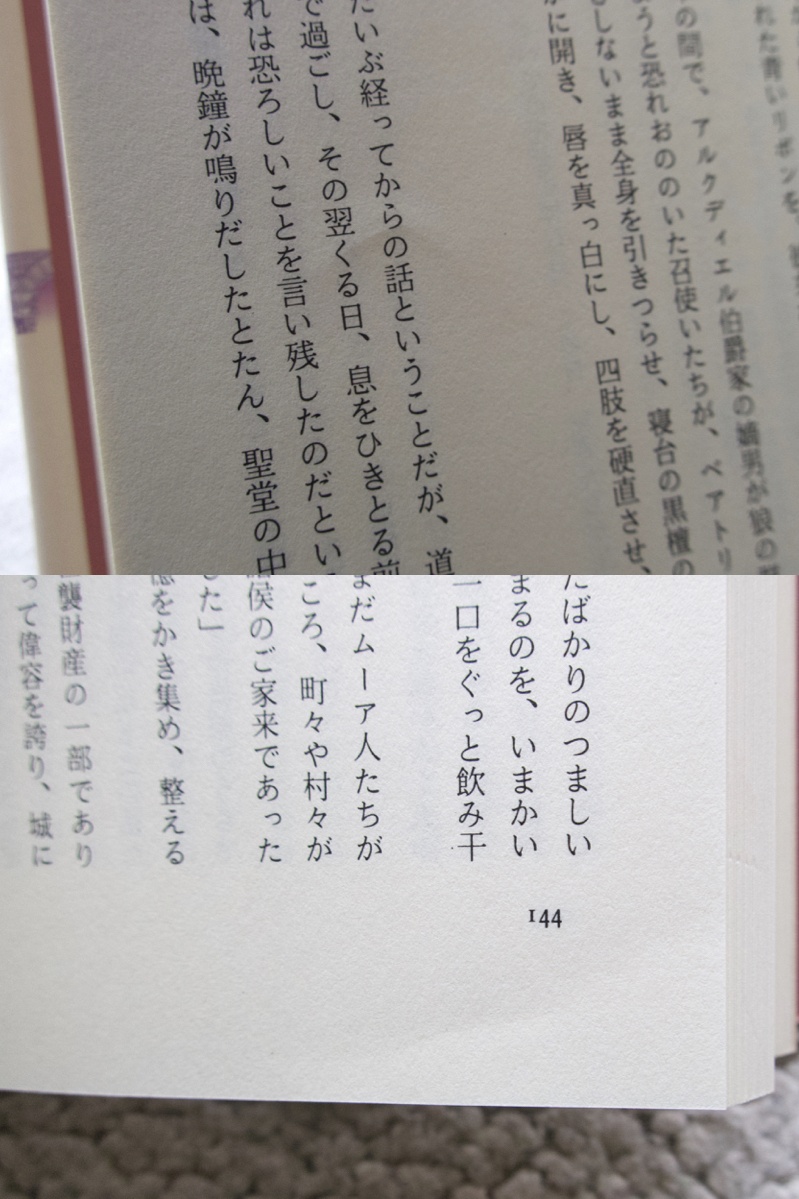 れた青いリボンを、
の間で、アルクディエル伯爵家の嫡男が狼の
ようと恐れおののいた召使いたちが、ベアトリ
もしないまま全身を引きつらせ、寝台の黒檀の
かに開き、唇を真っ白にし、四肢を硬直させ、
だいぶ経ってからの話ということだが、道
で過ごし、その翌くる日、息をひきとる前
れは恐ろしいことを言い残したのだとい
は、晩鐘が鳴りだしたとたん、聖堂の中
たばかりのつましい
まるのを、いまかい
一口をぐっと飲み干
まだムーア人たちが
ころ、町々や村々が
侯のご家来であった
した」
をかき集め、整える
襲財産の一部であり
って偉容を誇り、城に
144